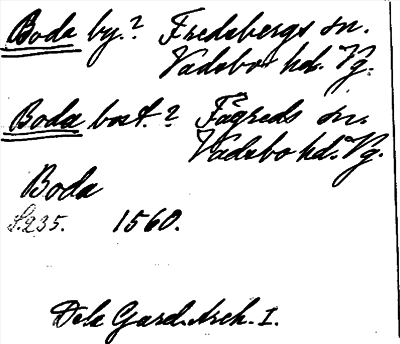 Boda by.? Fredsbergs sn.
Vadsbo hd. Vg.
Boda bost.? Fägreds sn.
Vadsbo hd. Vg.
Boda
S.235. 1560.
Dela Gard. Arch. I.